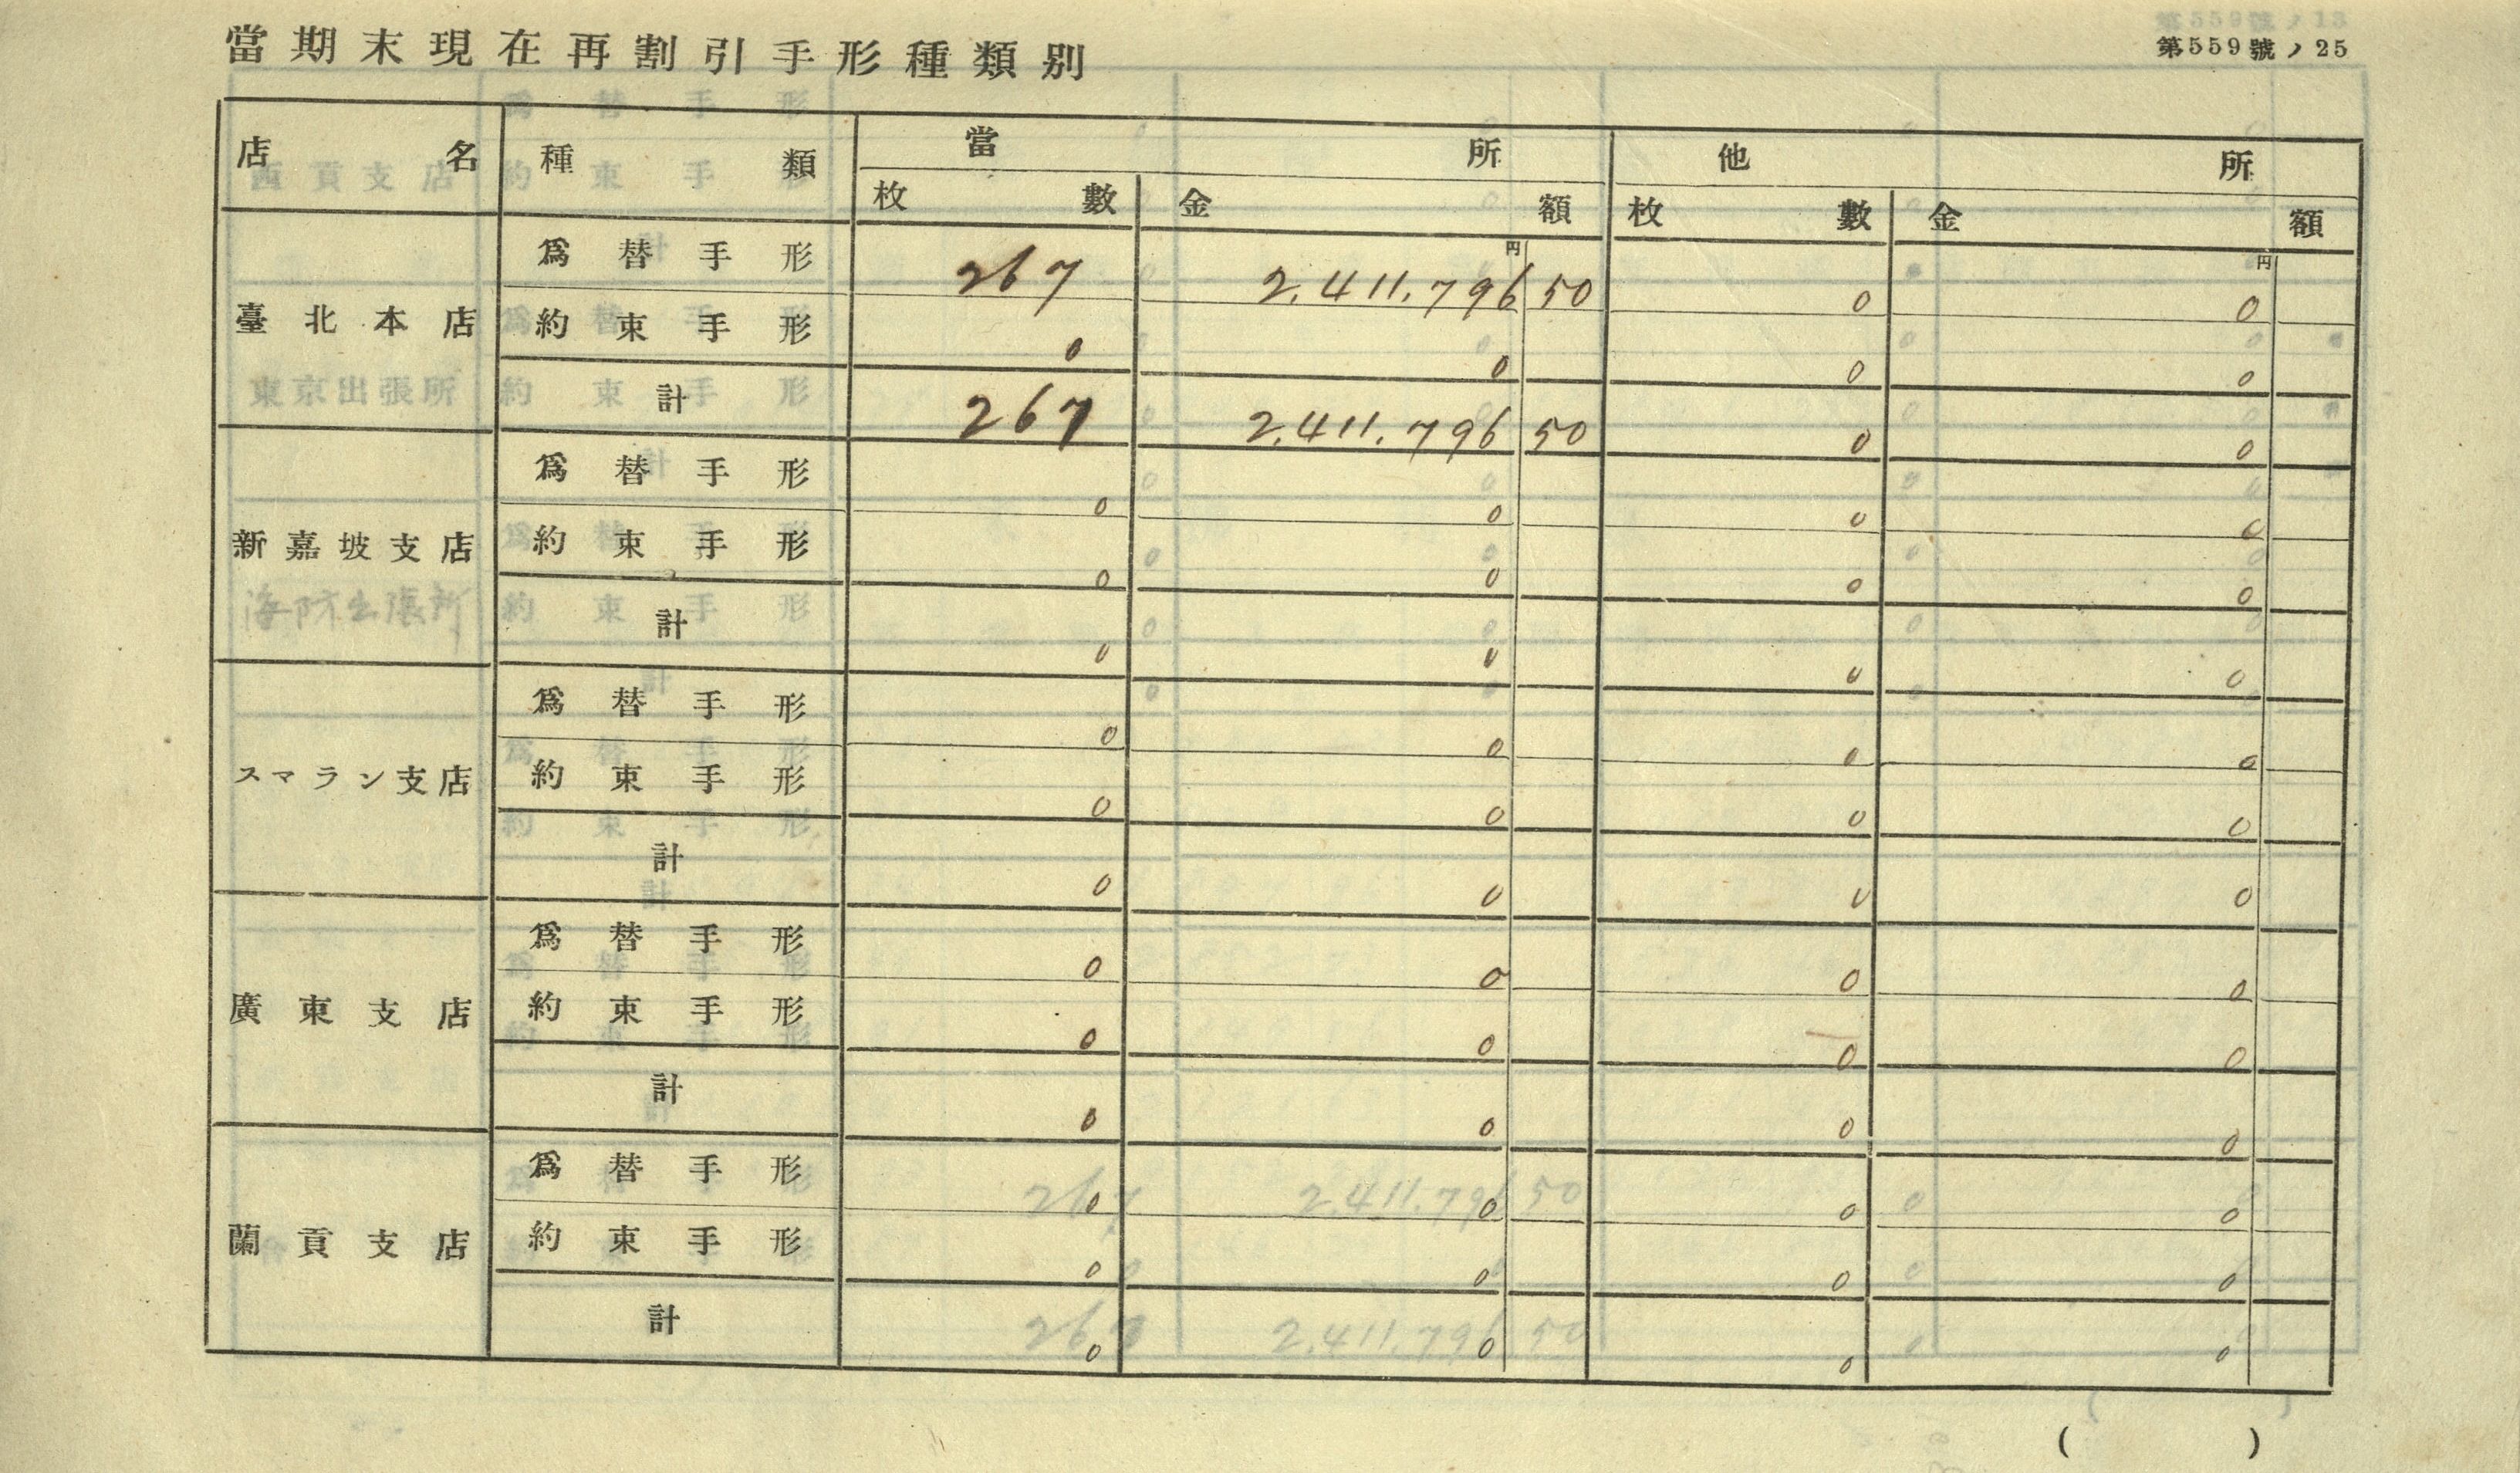 當期末現在再割引手形種類別
第559號ノ25
店名 種類 當所 他所
枚數 金額 枚數 金額
円 円
臺北本店 爲替手形 267 2,411,796 50 0 0
約束手形 0 0 0 0
計 267 2,411,796 50 0 0
新嘉坡支店 爲替手形 0 0 0 0
約束手形 0 0 0 0
計 0 0 0 0
スマラン支店 爲替手形 0 0 0 0
約束手形 0 0 0 0
計 0 0 0 0
廣東支店 爲替手形 0 0 0 0
約束手形 0 0 0 0
計 0 0 0 0
蘭貢支店 爲替手形 0 0 0 0
約束手形 0 0 0 0
計 0 0 0 0
( )